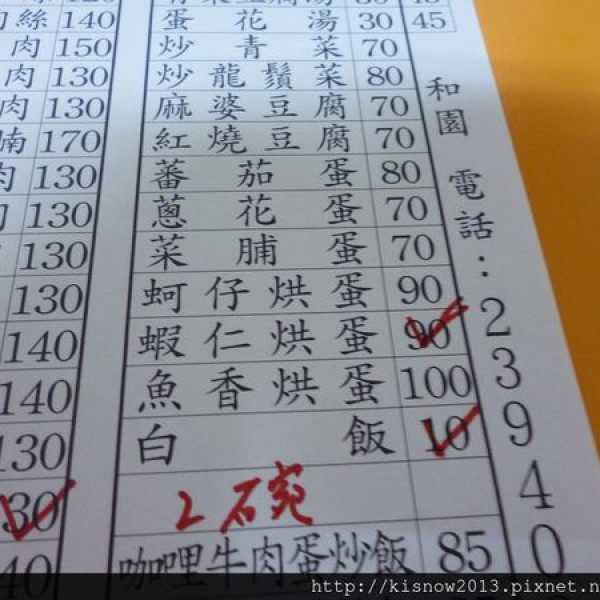 絲 140
肉 150
肉 130
肉 130
腩 170
130
130
130
130
140
140
130
30
40
蛋花湯 30 45
炒青菜 70
炒龍鬚菜 80
麻婆豆腐 70
紅燒豆腐 70
蕃茄蛋 80
蔥花蛋 70
菜脯蛋 70
蚵仔烘蛋 90
蝦仁烘蛋 90
魚香烘蛋 100
白飯 10
2碗
咖哩牛肉蛋炒飯 85
和園 電話：23940
http://kisnow2013.pixnet.n